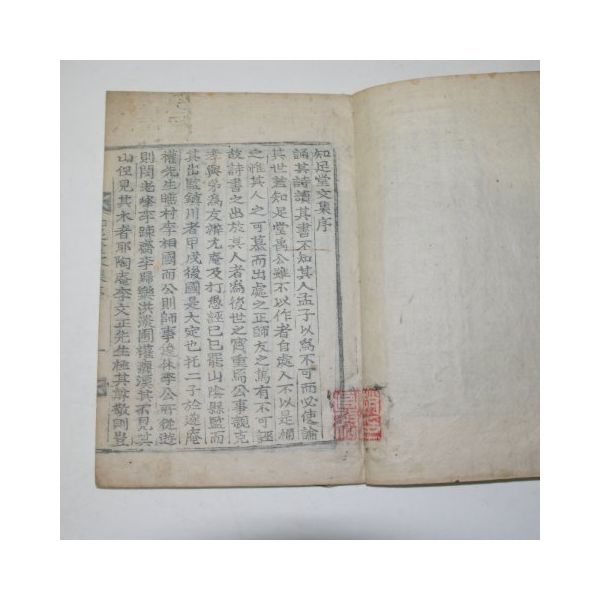 知足堂文集序
誦其詩讀其書不知其人孟子以爲不可而必使論
其世蓋知足堂禹公雖不以作者自處人不以是病
之惟其人之可慕而出處之正師友之篤有不可誣
故詩書之出於其人者爲後世之寶重焉公事親克
孝與弟爲友游尤庵及打愚誣己巳罷山陰縣監而
其出監鎭川者甲戌後國是大定也托二子於遂庵
權先生睡村李相國而公則師事逸休李公所從遊
則閔老峯李疎齋李歸樂洪
山但見其水者耶陶庵李文正先生極其詡敬則豈